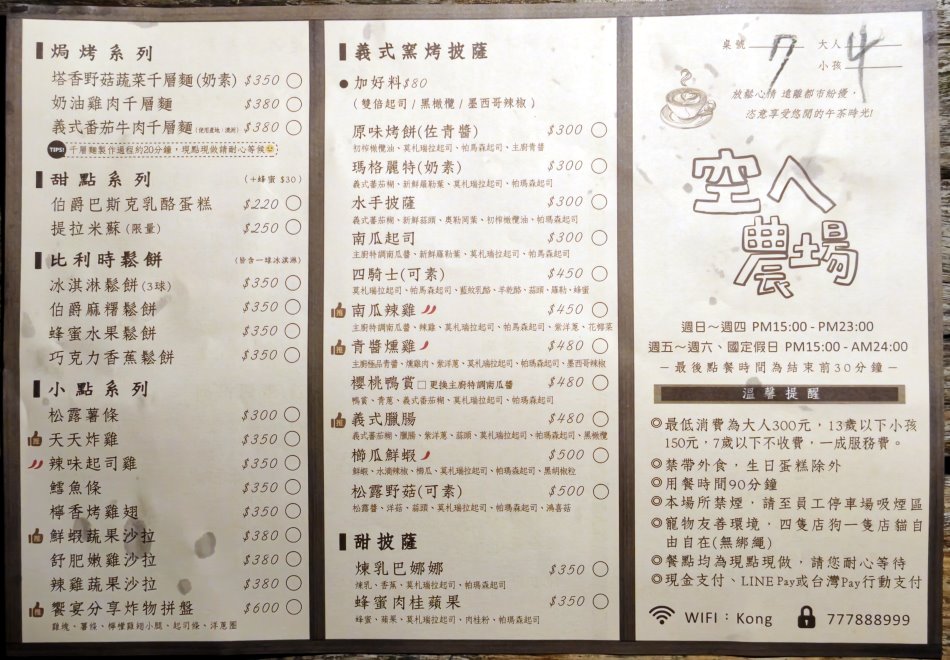 焗烤系列
塔香野菇蔬菜千層麵(奶素) $350
奶油雞肉千層麵 $380
義式番茄牛肉千層麵(使用產地：澳洲) $380
TIPS! 千層麵製作過程約20分鐘，現點現做請耐心等候
甜點系列 (+蜂蜜 $30)
伯爵巴斯克乳酪蛋糕 $220
提拉米蘇(限量) $250
比利時鬆餅 (皆含一球冰淇淋)
冰淇淋鬆餅(3球) $350
伯爵麻糬鬆餅 $350
蜂蜜水果鬆餅 $350
巧克力香蕉鬆餅 $350
小點系列
松露薯條 $300
推 天天炸雞 $350
辣味起司雞 $350
鱈魚條 $350
檸香烤雞翅 $350
推 鮮蝦蔬果沙拉 $380
舒肥嫩雞沙拉 $380
辣雞蔬果沙拉 $380
推 饗宴分享炸物拼盤 $600
雞塊、薯條、檸檬雞翅小腿、起司條、洋蔥圈
義式窯烤披薩
● 加好料$80
(雙倍起司/黑橄欖/墨西哥辣椒)
原味烤餅(佐青醬) $300
初榨橄欖油、莫札瑞拉起司、帕馬森起司、主廚青醬
瑪格麗特(奶素) $300
義式蕃茄糊、新鮮羅勒葉、莫札瑞拉起司、帕瑪森起司
水手披薩 $300
義式蕃茄糊、新鮮蒜頭、奧勒岡葉、初榨橄欖油、帕瑪森起司
南瓜起司 $300
主廚特調南瓜醬、新鮮羅勒葉、莫札瑞拉起司、帕瑪森起司
四騎士(可素) $450
莫札瑞拉起司、帕馬森起司、藍紋乳酪、羊乾酪、蒜頭、羅勒、蜂蜜
推 南瓜辣雞 $450
主廚特調南瓜醬、辣雞、莫札瑞拉起司、帕馬森起司、紫洋蔥、花椰菜
推 青醬燻雞 $480
主廚極品青醬、燻雞肉、紫洋蔥、莫札瑞拉起司、帕瑪森起司、墨西哥辣椒
櫻桃鴨賞 □更換主廚特調南瓜醬 $480
鴨賞、青蔥、義式蕃茄糊、莫札瑞拉起司、帕瑪森起司
推 義式臘腸 $480
義式蕃茄糊、臘腸、紫洋蔥、蒜頭、莫札瑞拉起司、帕瑪森起司、黑橄欖
櫛瓜鮮蝦 $500
鮮蝦、水滴辣椒、櫛瓜、莫札瑞拉起司、帕瑪森起司、黑胡椒粒
松露野菇(可素) $500
松露醬、洋菇、蒜頭、莫札瑞拉起司、帕瑪森起司、鴻喜菇
甜披薩
煉乳巴娜娜 $350
煉乳、香蕉、莫札瑞拉起司、帕瑪森起司
蜂蜜肉桂蘋果 $350
蜂蜜、蘋果、莫札瑞拉起司、肉桂粉、帕瑪森起司
桌號 7 大人 4
小孩
放鬆心情 遠離都市紛擾，
恣意享受悠閒的午茶時光!
空ㄟ
農場
週日～週四 PM15:00 - PM23:00
週五～週六、國定假日 PM15:00 - AM24:00
－最後點餐時間為結束前30分鐘－
溫馨提醒
◎最低消費為大人300元，13歲以下小孩
150元，7歲以下不收費，一成服務費。
◎禁帶外食，生日蛋糕除外
◎用餐時間90分鐘
◎本場所禁煙，請至員工停車場吸煙區
◎寵物友善環境，四隻店狗一隻店貓自
由自在(無綁繩)
◎餐點均為現點現做，請您耐心等待
◎現金支付、LINE Pay或台灣Pay行動支付
WIFI：Kong 777888999